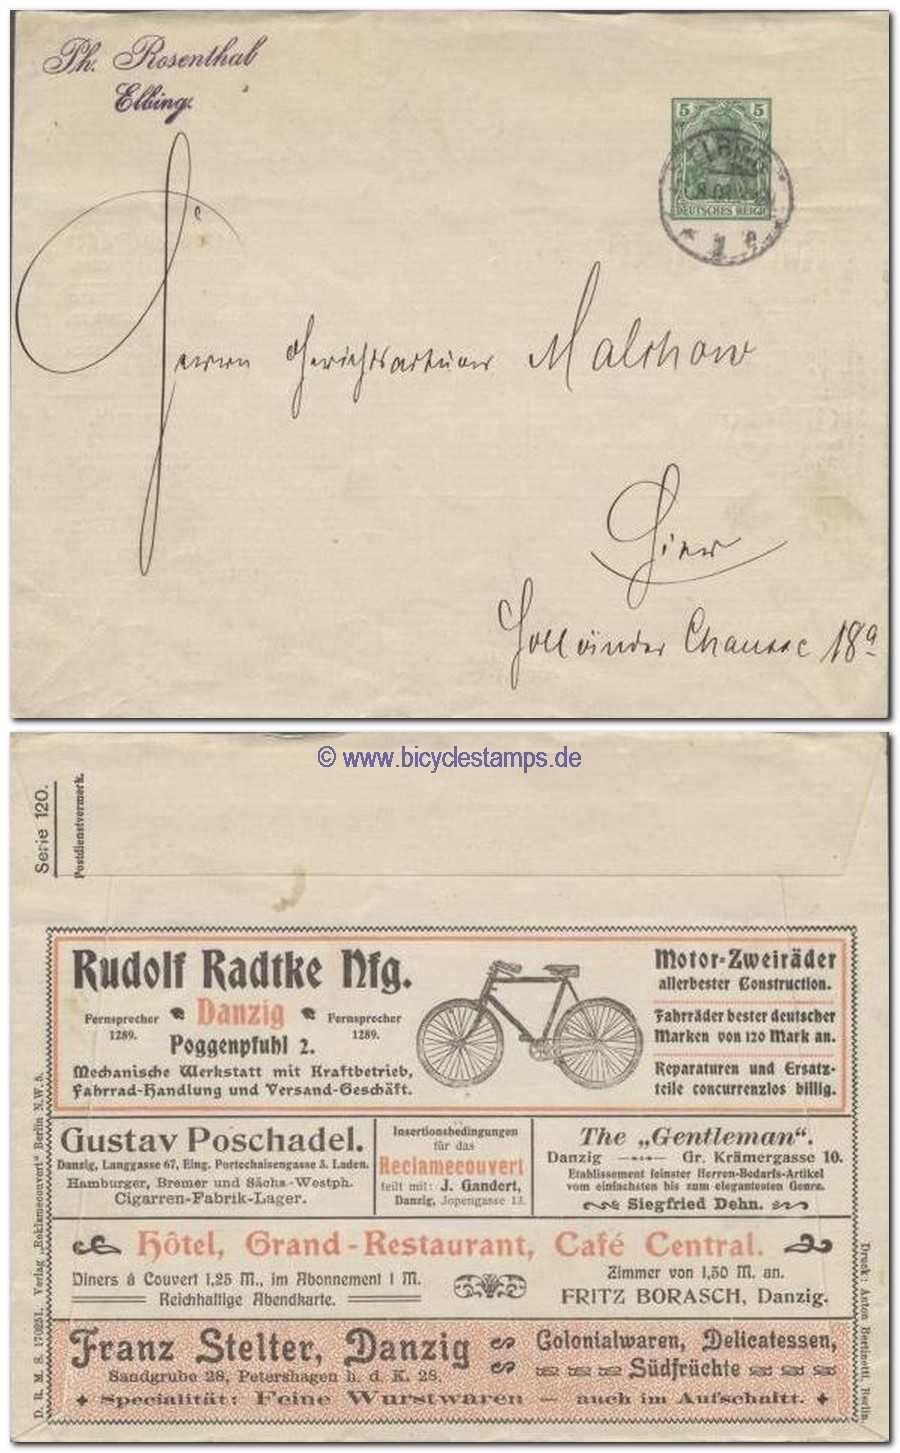 Ph. Rosenthal
Elbing.
5 5
DEUTSCHES REICH
Herrn Gerichtsactuar Malchow
Hier
Holländer Chaussee 18a
© www.bicyclestamps.de
Serie 120.
Postdienstvermerk.
Rudolf Radtke Nfg.
Danzig
Fernsprecher 1289.
Fernsprecher 1289.
Poggenpfuhl 2.
Mechanische Werkstatt mit Kraftbetrieb,
Fahrrad-Handlung und Versand-Geschäft.
Motor-Zweiräder
allerbester Construction.
Fahrräder bester deutscher
Marken von 120 Mark an.
Reparaturen und Ersatz-
teile concurrenzlos billig.
Gustav Poschadel.
Danzig, Langgasse 67, Eing. Portechaisengasse 3. Laden.
Hamburger, Bremer und Sächs.-Westph.
Cigarren-Fabrik-Lager.
Insertionsbedingungen
für das
Reclamecouvert
teilt mit: J. Gandert,
Danzig, Jopengasse 13.
The „Gentleman“.
Danzig Gr. Krämergasse 10.
Etablissement feinster Herren-Bedarfs-Artikel
vom einfachsten bis zum elegantesten Genre.
Siegfried Dehn.
Hôtel, Grand-Restaurant, Café Central.
Diners à Couvert 1,25 M., im Abonnement 1 M.
Reichhaltige Abendkarte.
Zimmer von 1,50 M. an.
FRITZ BORASCH, Danzig.
Franz Stelter, Danzig
Sandgrube 28, Petershagen h. d. K. 28.
Colonialwaren, Delicatessen,
Südfrüchte
Specialität: Feine Wurstwaren — auch im Aufschnitt.
D. R. M. S. 170251. Verlag „Reklamecouvert“ Berlin N.W. 5.
Druck: Anton Bertinetti, Berlin.